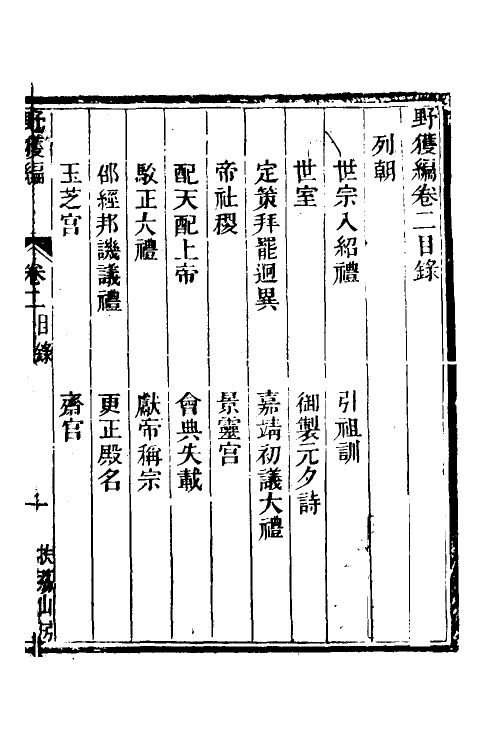 野獲編卷二目錄
列朝
世宗入紹禮　引祖訓
世室　御製元夕詩
定策拜罷迥異　嘉靖初議大禮
帝社稷　景靈宮
配天配上帝　會典失載
駁正大禮　獻帝稱宗
邵經邦議禮　更正殿名
玉芝宮　齋宮
野獲編　卷二目錄　扶荔山房